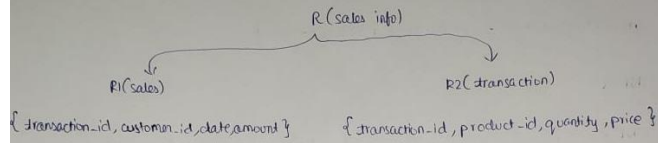 R(sales info)
R1(sales)
R2(transaction)
{transaction_id, customer_id, date, amount}
{transaction_id, product_id, quantity, price}